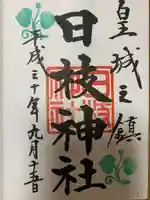 皇城之鎮
日枝神社
平成三十年九月十五日